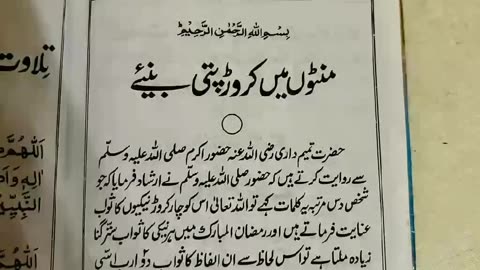 بِسْمِ اللّٰہِ الرَّحْمٰنِ الرَّحِیْمِ
منٹوں میں کروڑ پتی بنیئے
حضرت تمیم داری رضی اللہ عنہ حضور اکرم صلی اللہ علیہ وسلم
سے روایت کرتے ہیں کہ حضور صلی اللہ علیہ وسلم نے ارشاد فرمایا کہ جو
شخص دس مرتبہ یہ کلمات کہے تو اللہ تعالیٰ اس کو چار کروڑ نیکیوں کا ثواب
عنایت فرماتے ہیں اور رمضان المبارک میں ہر نیکی کا ثواب ستر گنا
زیادہ ملتا ہے تو اس لحاظ سے ان الفاظ کا ثواب دو ارب اسی
تلاوت
اَللّٰهُمَّ